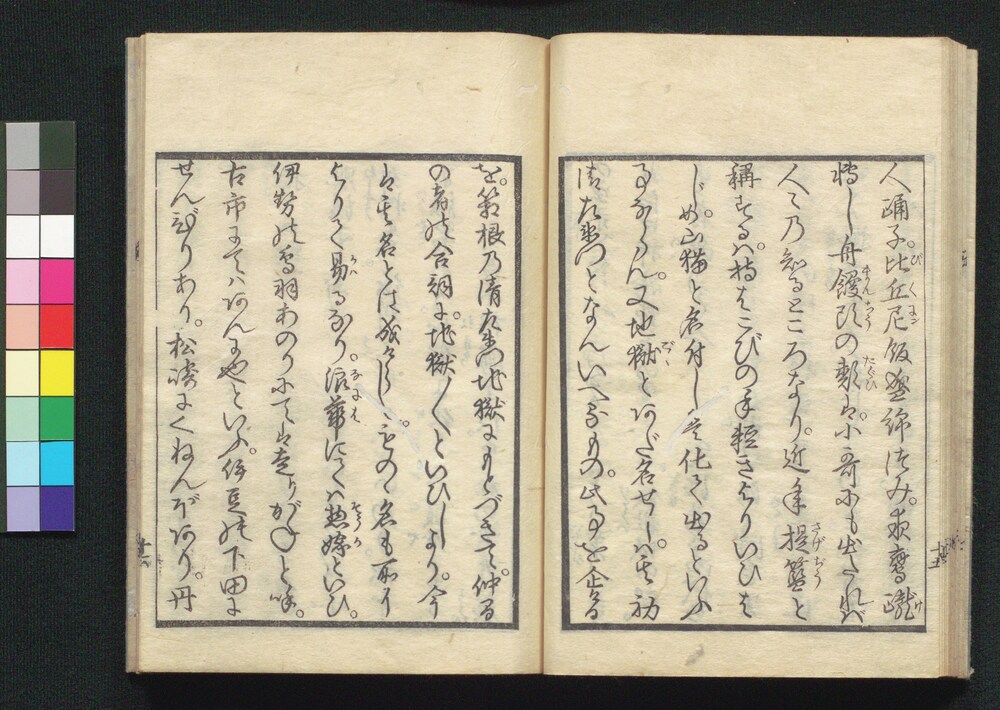 人踊子。比丘尼飯盛綿つみ。夜鷹蹴
転し舟饅頭の類は。小哥にも出たれば
人の知るところなり。近年提籃と
称するは。持はこびの手軽きよりいひは
じめ。山猫と名付しは化て出るといふ
事ならん。又地獄とあだ名せしは其初
清左衛門となんいへるもの。此事を企る
を。箱根の清左衛門地獄にもとづきて。仲間
の者の合詞に。地獄〳〵といひしより。今
は其名とは成けらし。その名も所に
よりて易るなり。浪華にては惣嫁といひ。
伊勢の鳥羽あのりにては走りがねと呼。
古市にてはあんにやといふ。伊豆の下田に
せんびりあり。松崎にくねんぼあり。丹